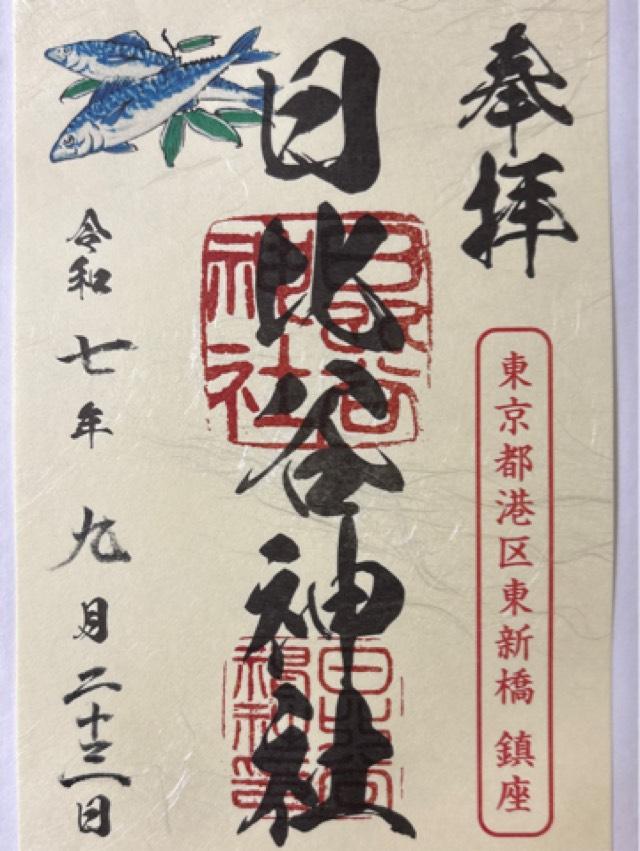 奉拝
東京都港区東新橋 鎮座
日比谷神社
令和七年 九月二十三日